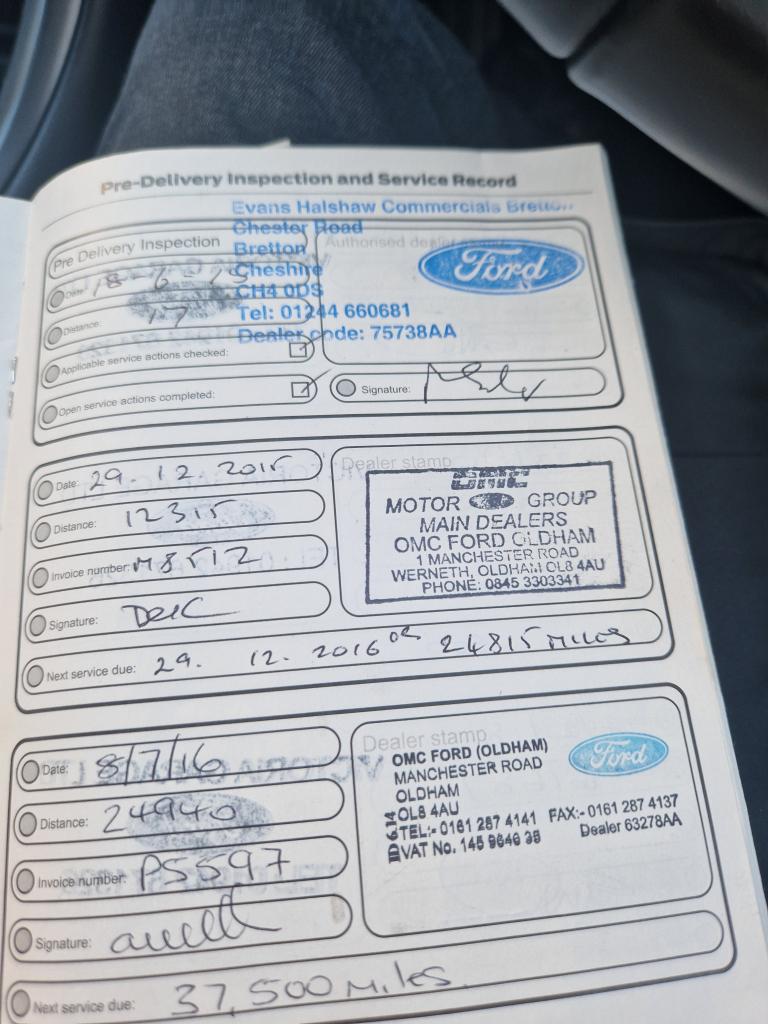 Pre-Delivery Inspection and Service Record
Evans Halshaw Commercials Bretton
Chester Road
Bretton
Cheshire
CH4 0DS
Tel: 01244 660681
Dealer code: 75738AA
Pre Delivery Inspection
Authorised dealer
Ford
Date: 18-6-15
Distance: 17
Applicable service actions checked:
Open service actions completed:
Signature:
Date: 29.12.2015
Distance: 12315
Invoice number: M8512
Signature:
Next service due: 29. 12. 2016 or 24815 miles
Dealer stamp
OMC
MOTOR GROUP
MAIN DEALERS
OMC FORD OLDHAM
1 MANCHESTER ROAD
WERNETH, OLDHAM OL8 4AU
PHONE: 0845 3303341
Date: 8/7/16
Distance: 24940
Invoice number: P5597
Signature:
Next service due: 37,500 miles
Dealer stamp
OMC FORD (OLDHAM)
MANCHESTER ROAD
OLDHAM
OL8 4AU
TEL:- 0161 287 4141 FAX:- 0161 287 4137
VAT No. 145 9646 38 Dealer 63278AA
Ford